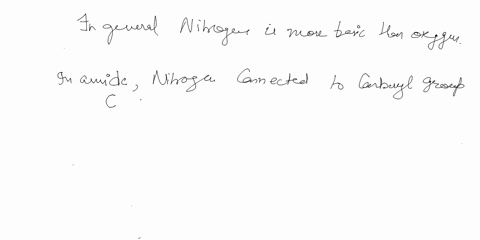 In general Nitrogen is more basic than oxygen.
In amide, Nitrogen Connected to Carbonyl group
C